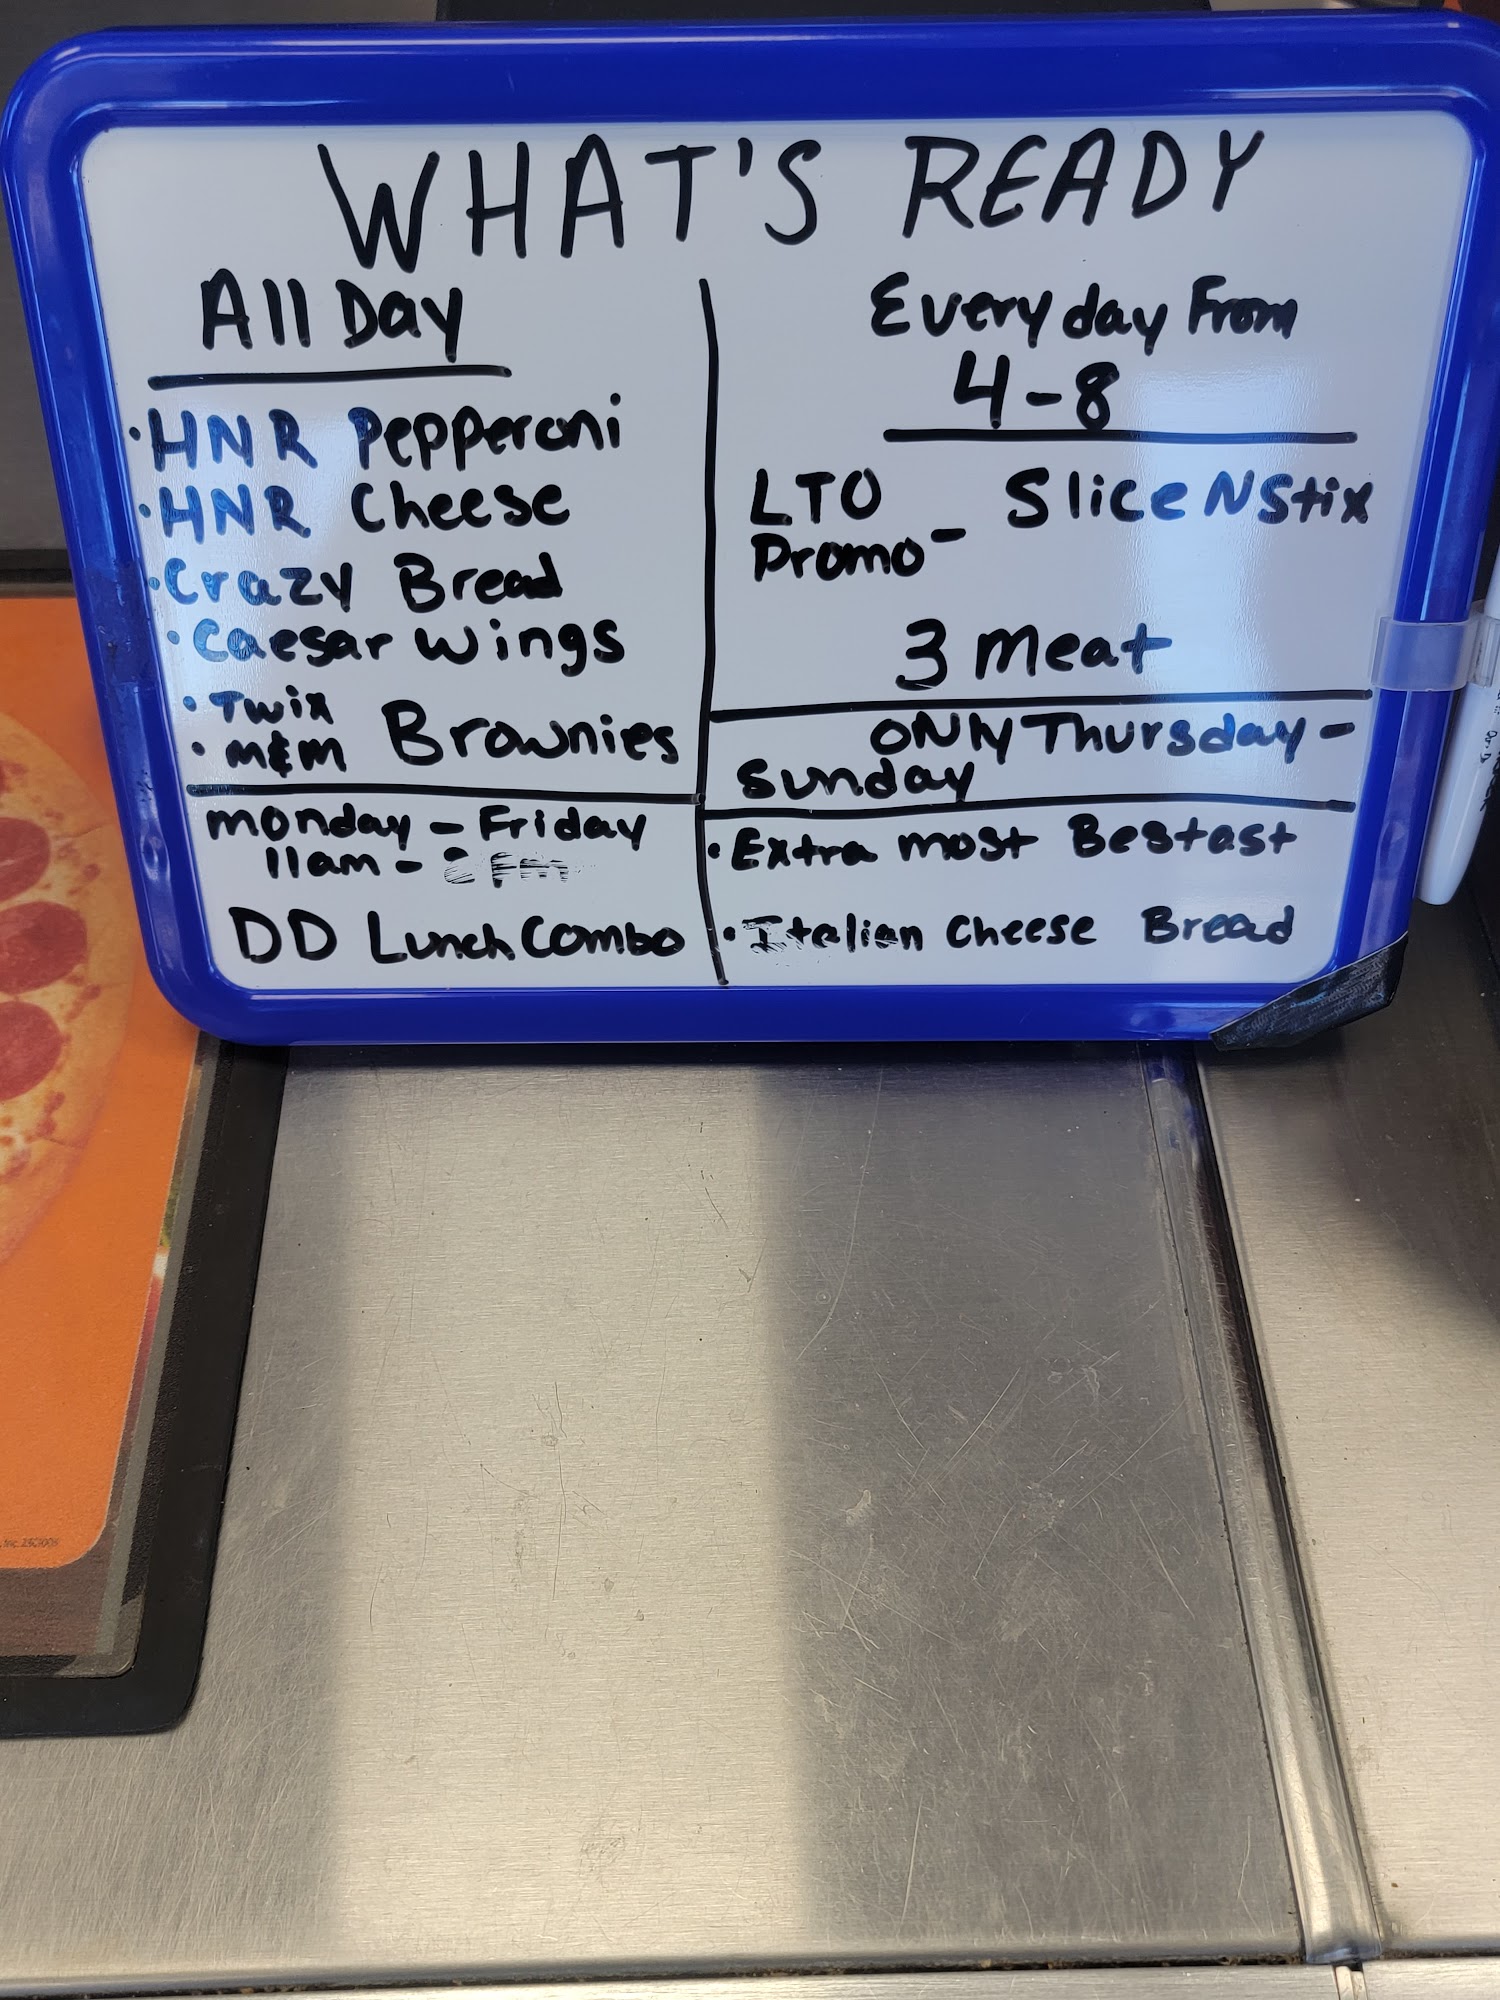 WHAT'S READY
All Day
• HNR Pepperoni
• HNR Cheese
• Crazy Bread
• Caesar Wings
• Twix
• M&M Brownies
Monday - Friday
11am - 2 pm
DD Lunch Combo
Everyday From
4-8
LTO
Promo - Slice N Stix
3 Meat
ONly Thursday -
Sunday
• Extra most Bestest
• Italian Cheese Bread